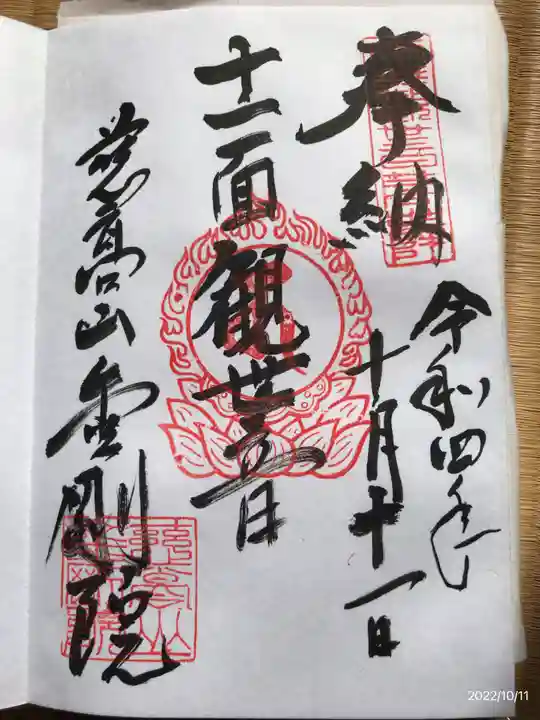 奉納
令和四年
十月十一日
十一面観世音
慈高山金剛院
2022/10/11